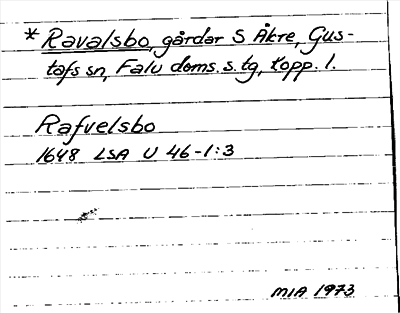 * Ravalsbo, gårdar S Åkre, Gus-
tafs sn, Falu doms. s. tg, Kopp. l.
Rafvelsbo
1648 LSA U 46-1:3
MIA 1973